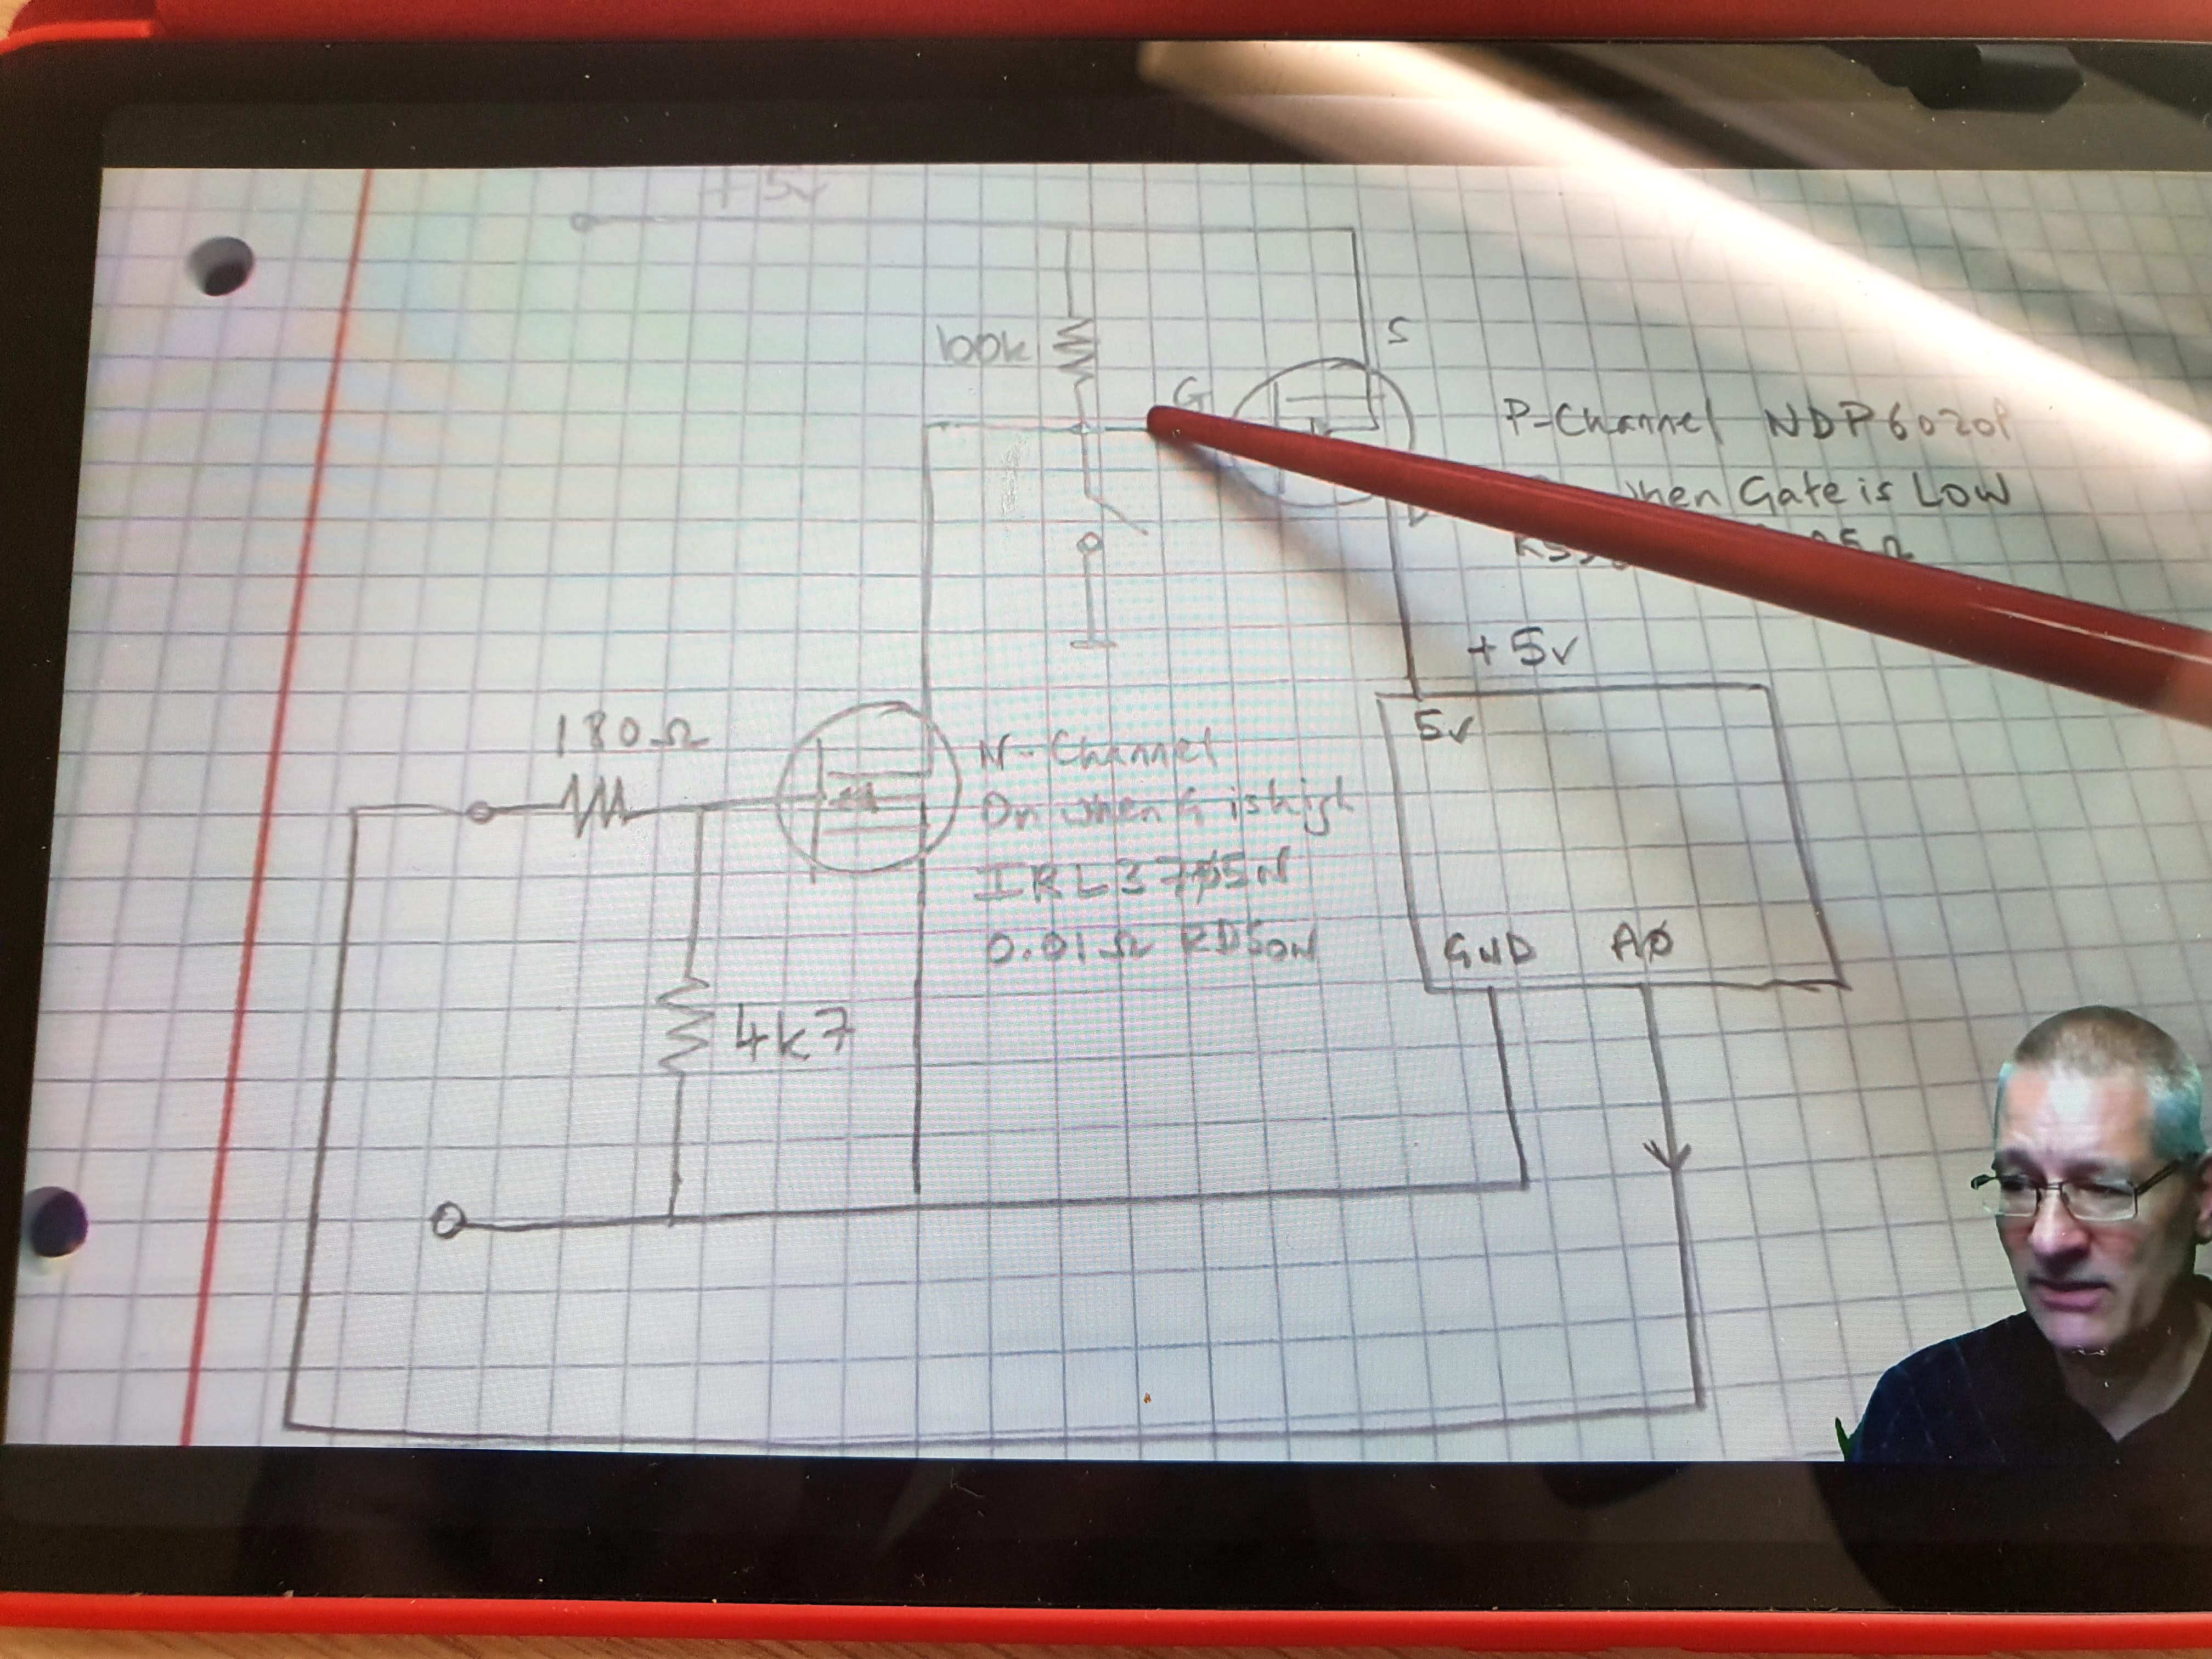 +5v
100k
S
G
P-Channel NDP6020P
when Gate is Low
+5v
5v
180Ω
N-Channel
On when G is high
IRL3705N
0.01Ω RDSON
GND AØ
4k7